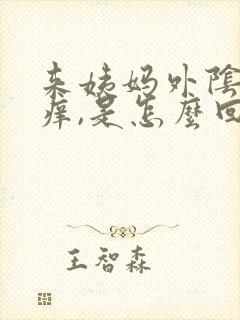 来姨妈外陰
痒,是怎麼回
王智森